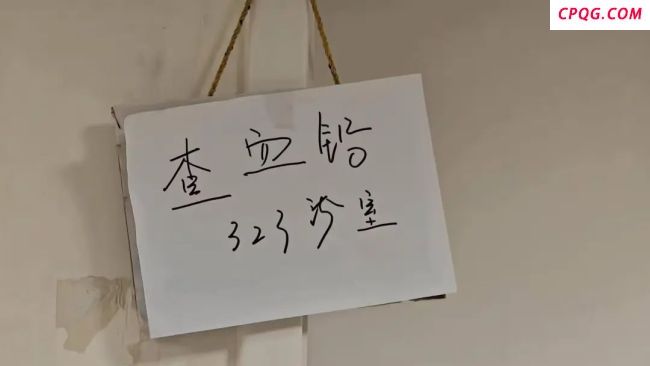 CPQG.COM
查血铅
323诊室